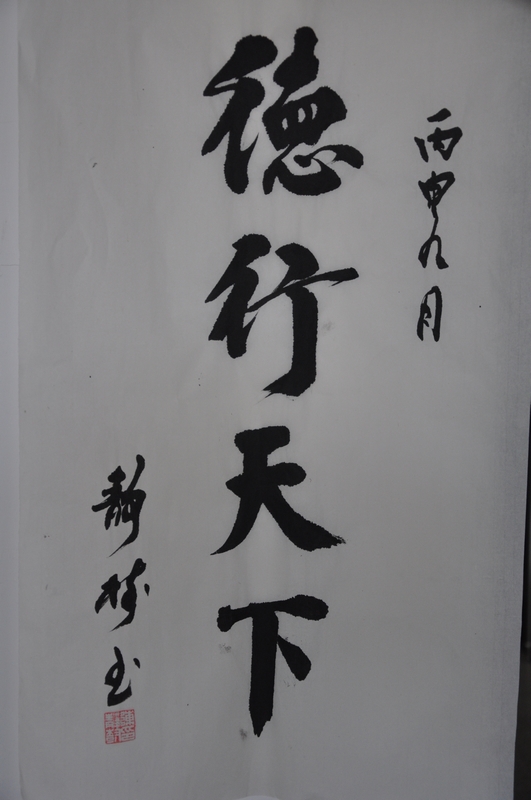 丙申九月
德行天下
静